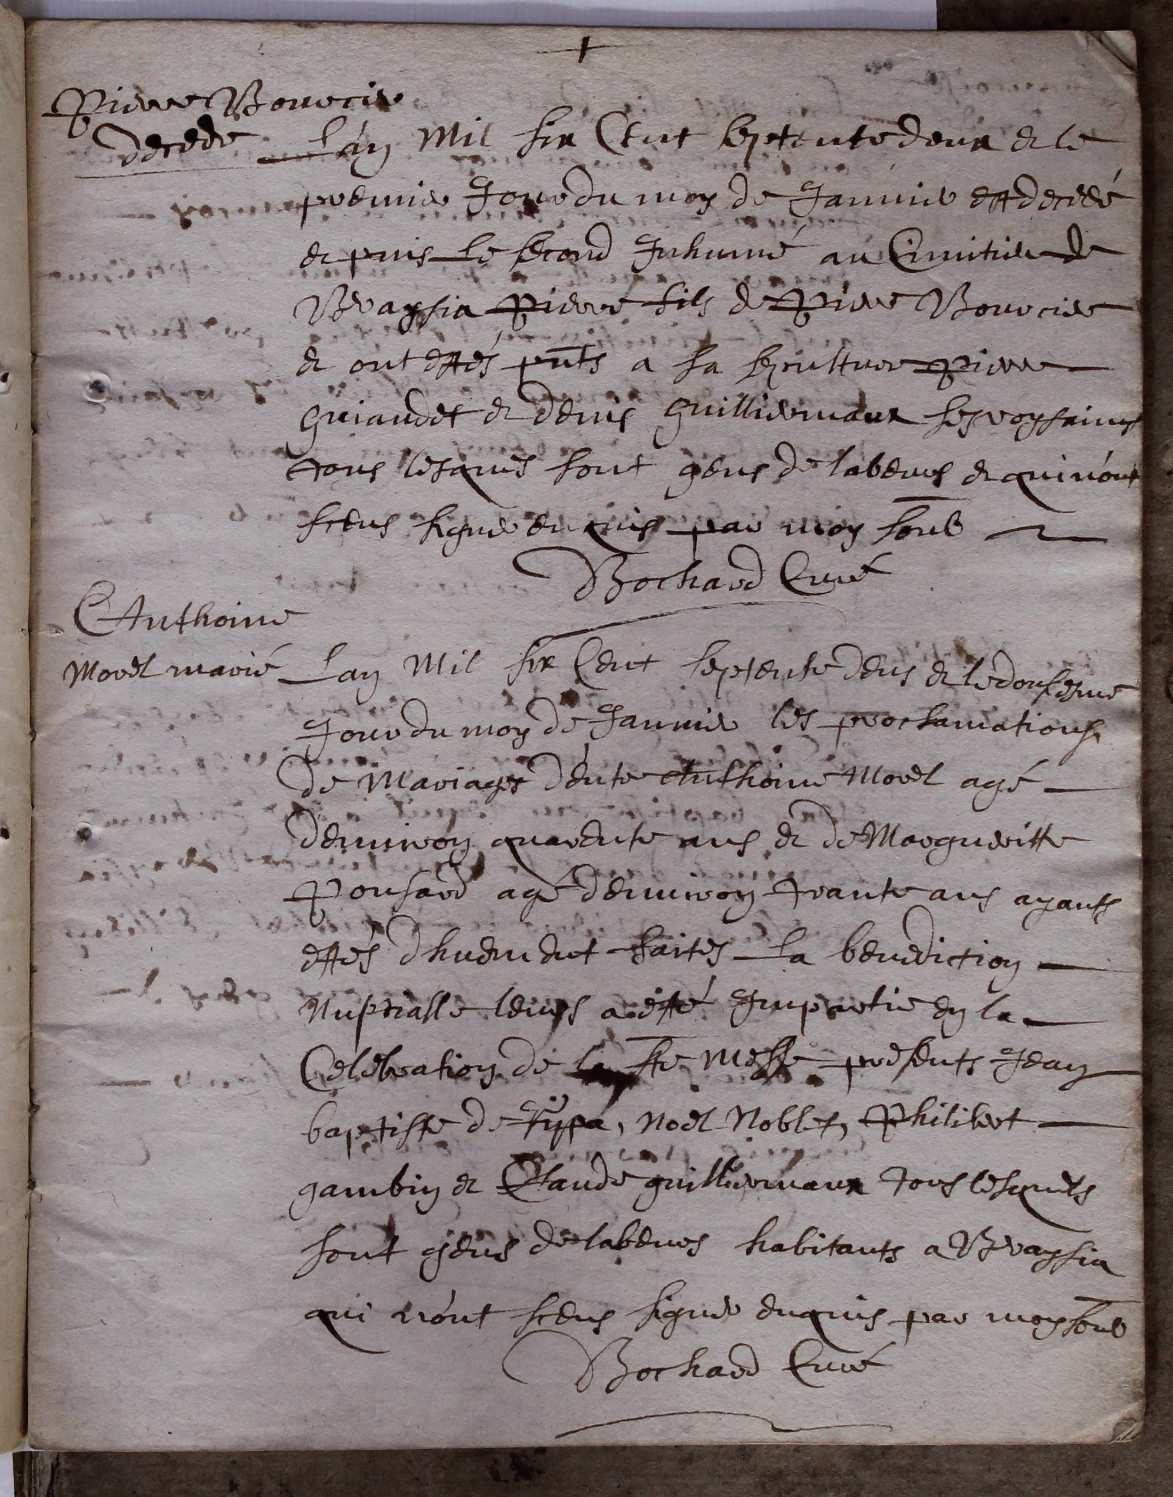 Pierre Bourcier
decede
Lan Mil six Cent septente deux & le
premier Jour du moy de Januier est decedé
& puis le second Inhumé au Cimitier de
Braysia Pierre fils de Pierre Bourcier
& ont estés pnts a sa sepulture Pierre
guiaudet & denis guilliermaux ses voysains
tous lesquels sont gens de labeurs & qui n'ont
sceus signer enquis par moy soub
Bochard Curé
Anthoine
Morel marié
Lan Mil six Cent septente deus & le dousiesme
Jour du moy de Januier les proclamations
de Mariages d'entre Anthoine Morel agé
d'enuiron quarente ans & de Margueritte
Ponsard agé d'enuiron trante ans ayants
estés dhuement faites la benediction
Nuptialle leurs a esté Impartie en la
Celebration de la ste Messe presents Jean
baptiste de , Noel Noblet, Philibert
gambin & Claude guilliermaux tous lesquels
sont gens de labeurs habitants a Braysia
qui n'ont sceus signer enquis par moy soub
Bochard Curé